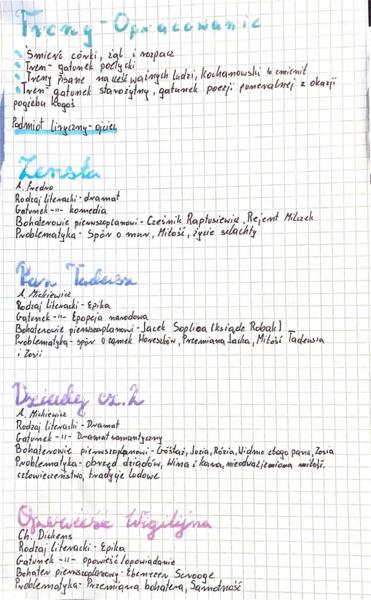 Treny - Opracowanie
Śmierć córki, żal i rozpacz
Tren - gatunek poetycki
Treny pisane na cześć ważnych ludzi, Kochanowski to zmienił
Tren gatunek starożytny, gatunek poezji funeralnej z okazji
pogrebu kogoś
Podmiot liryczny - ojciec
Zemsta
A. Fredro
Rodzaj literacki - dramat
Gatunek -"- komedia
Bohaterowie pierwszoplanowi - Cześnik Raptusiewicz, Rejent Milczek
Problematyka - Spór o mur, Miłość, życie szlachty
Pan Tadeusz
A. Mickiewicz
Rodzaj literacki - Epika
Gatunek -"- Epopeja narodowa
Bohaterowie pierwszoplanowi - Jacek Soplica (ksiądz Robak)
Problematyka - spór o zamek Horeszków, Przemiana Jacka, Miłość Tadeusza
i Zosi
Dziady cz. 2
A. Mickiewicz
Rodzaj literacki - Dramat
Gatunek -"- Dramat romantyczny
Bohaterowie pierwszoplanowi - Guślarz, Józio, Rózia, Widmo złego pana, Zosia
Problematyka - obrzęd dziadów, Wina i kara, nieodwzajemniona miłość,
człowieczeństwo, tradycje ludowe
Opowieść Wigilijna
Ch. Dickens
Rodzaj literacki - Epika
Gatunek -"- opowieść/opowiadanie
Bohater pierwszoplanowy - Ebenezer Scrooge
Problematyka - Przemiana bohatera, Samotność